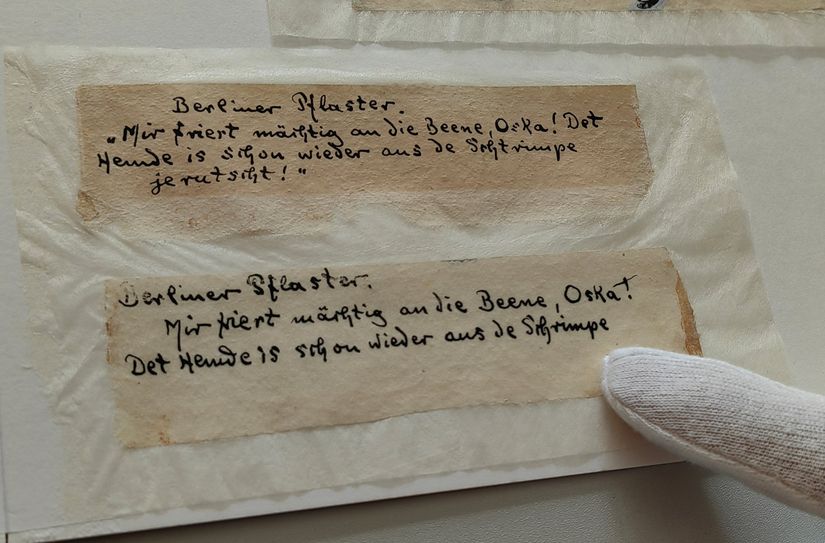 Berliner Pflaster.
„Mir friert mächtig an die Beene, Oska! Det
Hemde is schon wieder aus de Schtrimpe
jerutscht!"
Berliner Pflaster.
Mir friert mächtig an die Beene, Oska!
Det Hemde is schon wieder aus de Schrimpe